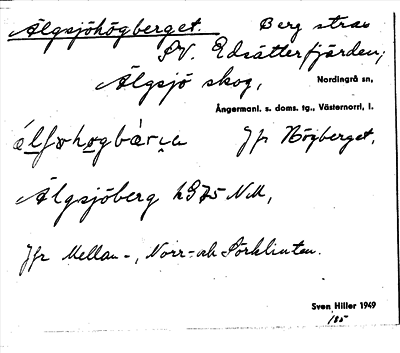 Älgsjöhögberget. Berg strax
SV. Edsätterfjärden,
Älgsjö skog, Nordingrå sn,
Ångermanl. s. doms. tg., Västernorrl, l.
Jfr Högberget,
Älgsjöberg h 975 NM,
Jfr Mellan-, Norr- och Sörklinten.
Sven Hiller 1949
185